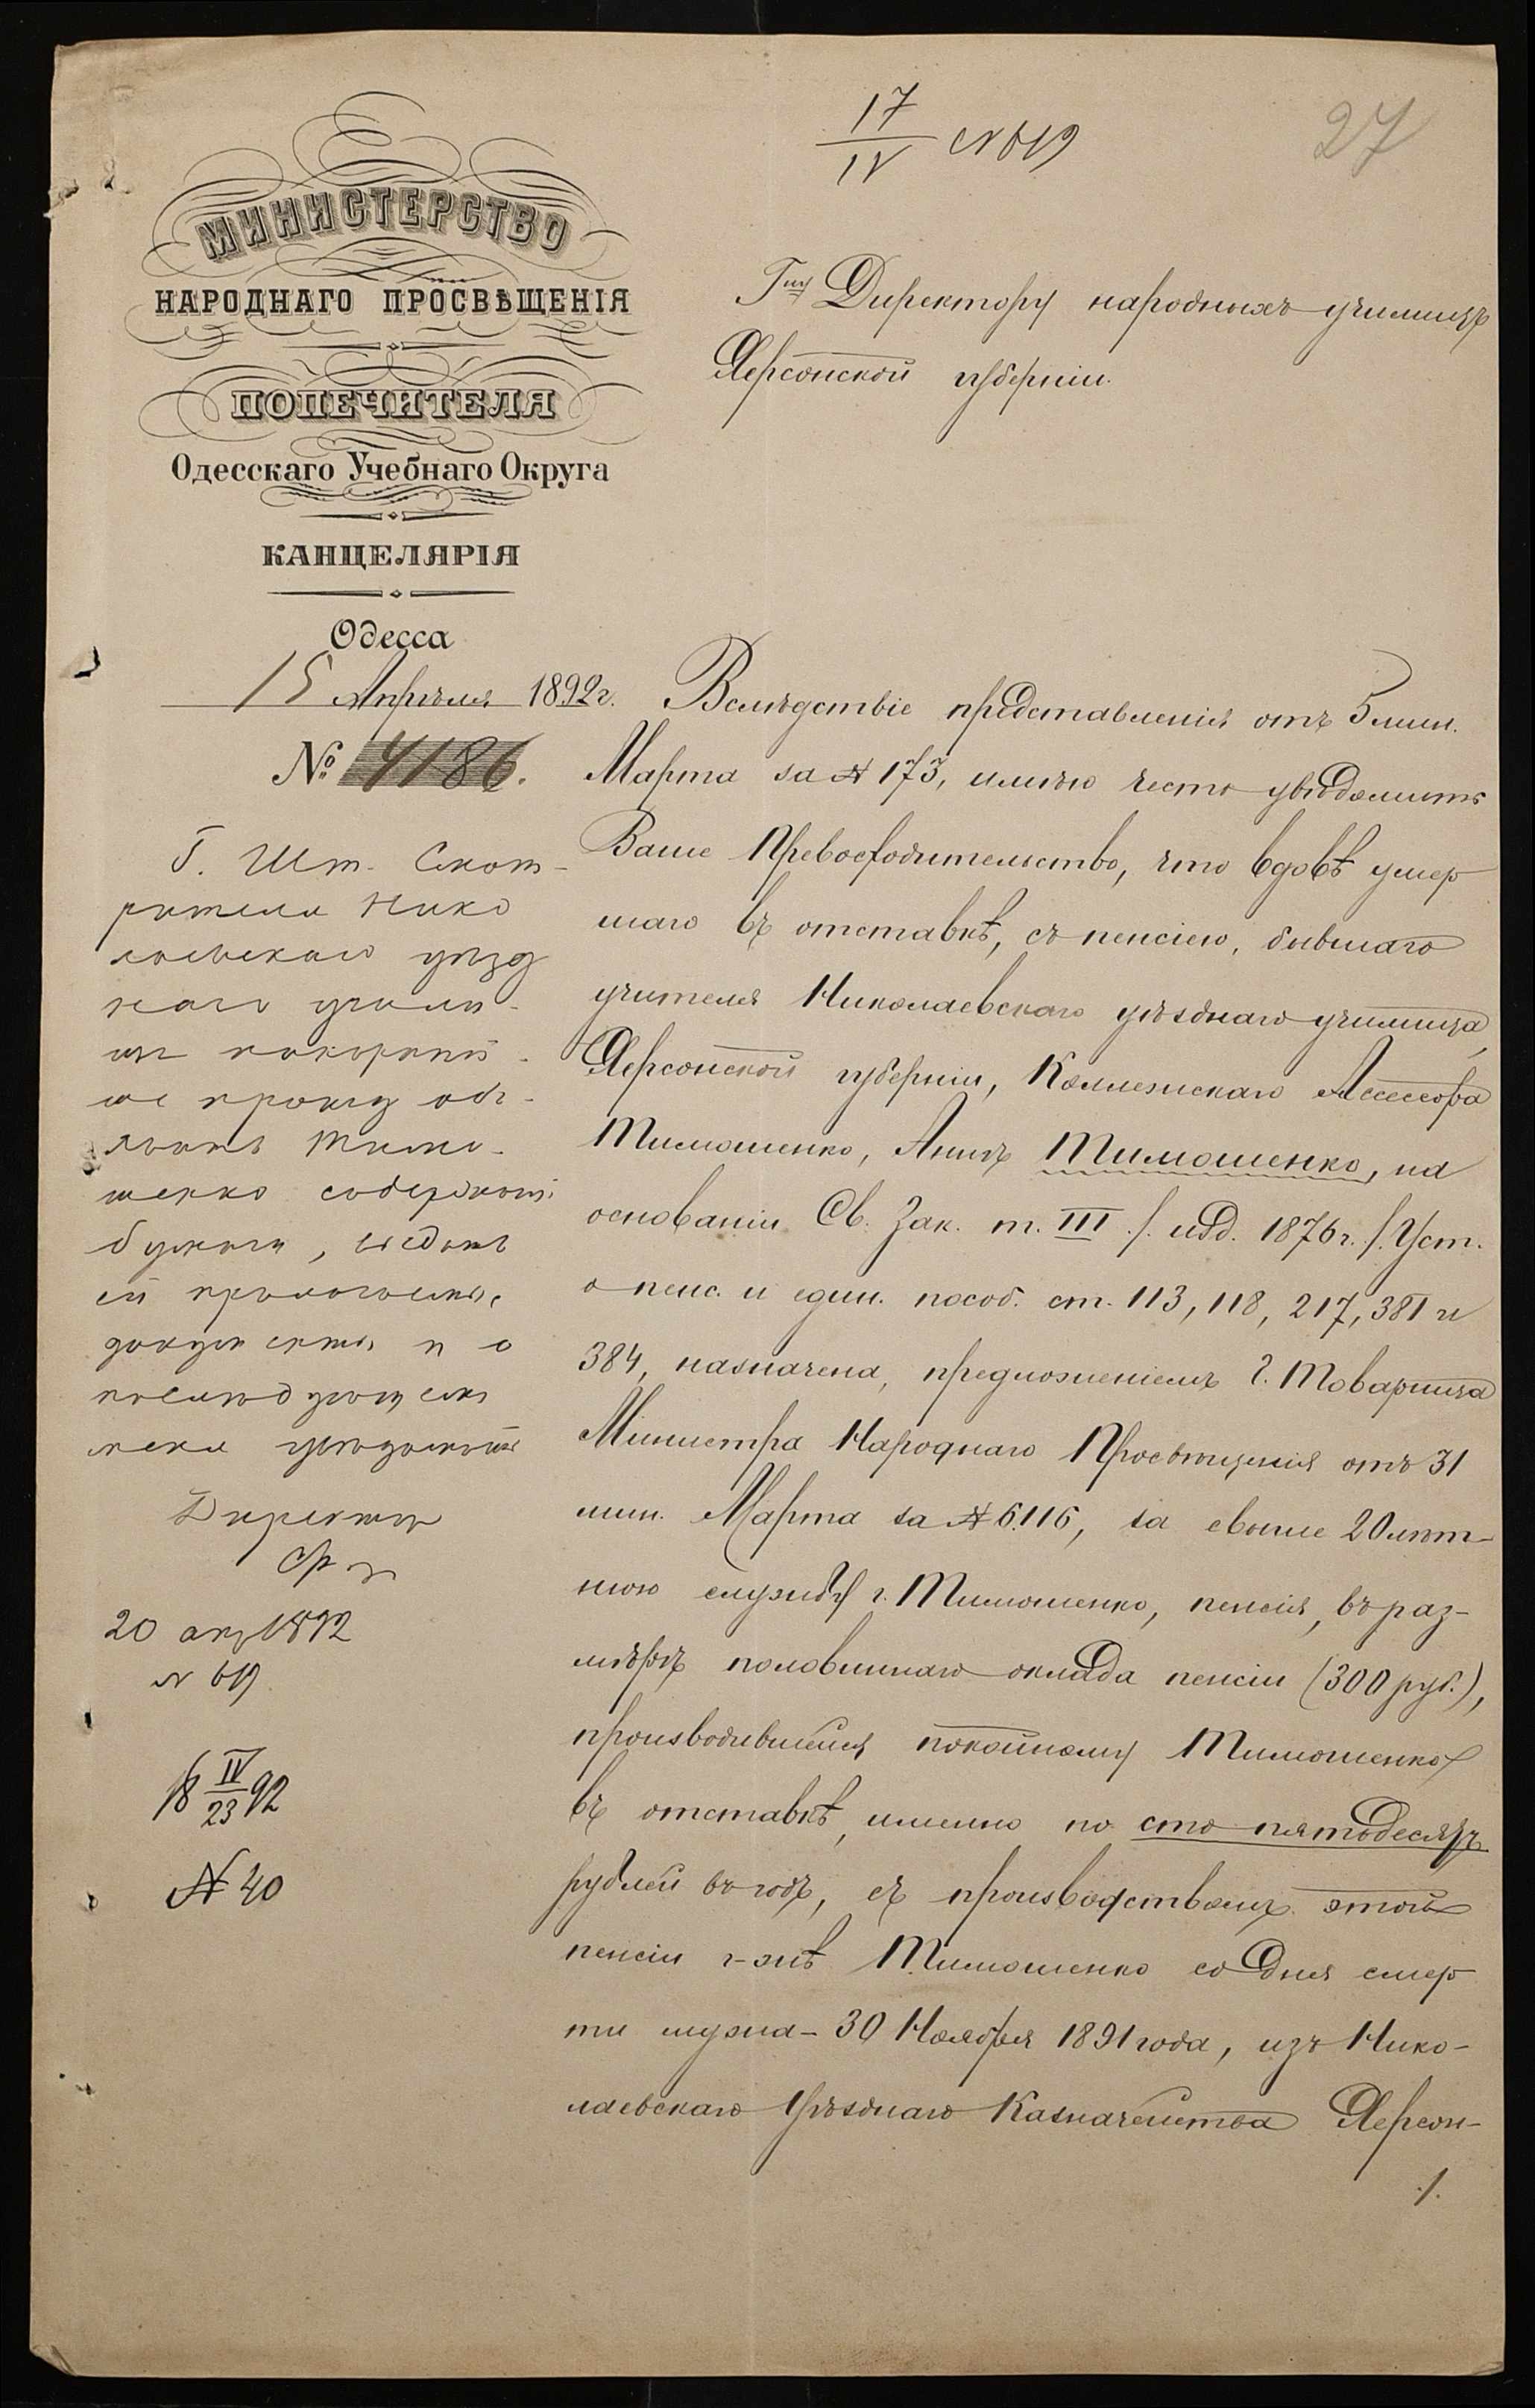 17
IV
№ 619
27
МИНИСТЕРСТВО
НАРОДНАГО ПРОСВѢЩЕНІЯ
ПОПЕЧИТЕЛЯ
Одесскаго Учебнаго Округа
КАНЦЕЛЯРІЯ
Одесса
15 Апрѣля 1892 г.
№ 4186.
Гну Директору народныхъ училищъ
Херсонской губерніи.
Вслѣдствіе представленія отъ 5 мин.
Марта за № 173, имѣю честь увѣдомить
Ваше Превосходительство, что вдовѣ умер
шаго въ отставкѣ, съ пенсіею, бывшаго
учителя Николаевскаго уѣзднаго училища,
Херсонской губерніи, Коллежскаго Ассесора
Тимошенко, Аннѣ Тимошенко, на
основаніи Св. Зак. т. III /. изд. 1876 г. /. Уст.
о пенс. и един. пособ. ст. 113, 118, 217, 381 и
384, назначена, предложеніемъ г. Товарища
Министра Народнаго Просвѣщенія отъ 31
мин. Марта за № 6116, за свыше 20 лѣт-
нюю службу г. Тимошенко, пенсія, въ раз-
мѣрѣ половиннаго оклада пенсіи (300 руб.),
производившейся покойному Тимошенко
въ отставкѣ, именно по сто пятьдесятъ
рублей въ годъ, съ производствомъ этой
пенсіи г-жѣ Тимошенко со дня смер
ти мужа - 30 Ноября 1891 года, изъ Нико-
лаевскаго Уѣзднаго Казначейства Херсон-
./.
Г. Шт. Смот-
рителя Нико
лаевскаго уѣзд
наго учили-
ща покорнѣй-
ше прошу объ-
явить Тимо-
шенко содержаніе
бумаги, выдать
ей прилагаемые
документы и о
послѣдующемъ
меня увѣдомить
Директоръ
20 апр 1892
№ 619
18 IV/23 92
№ 40